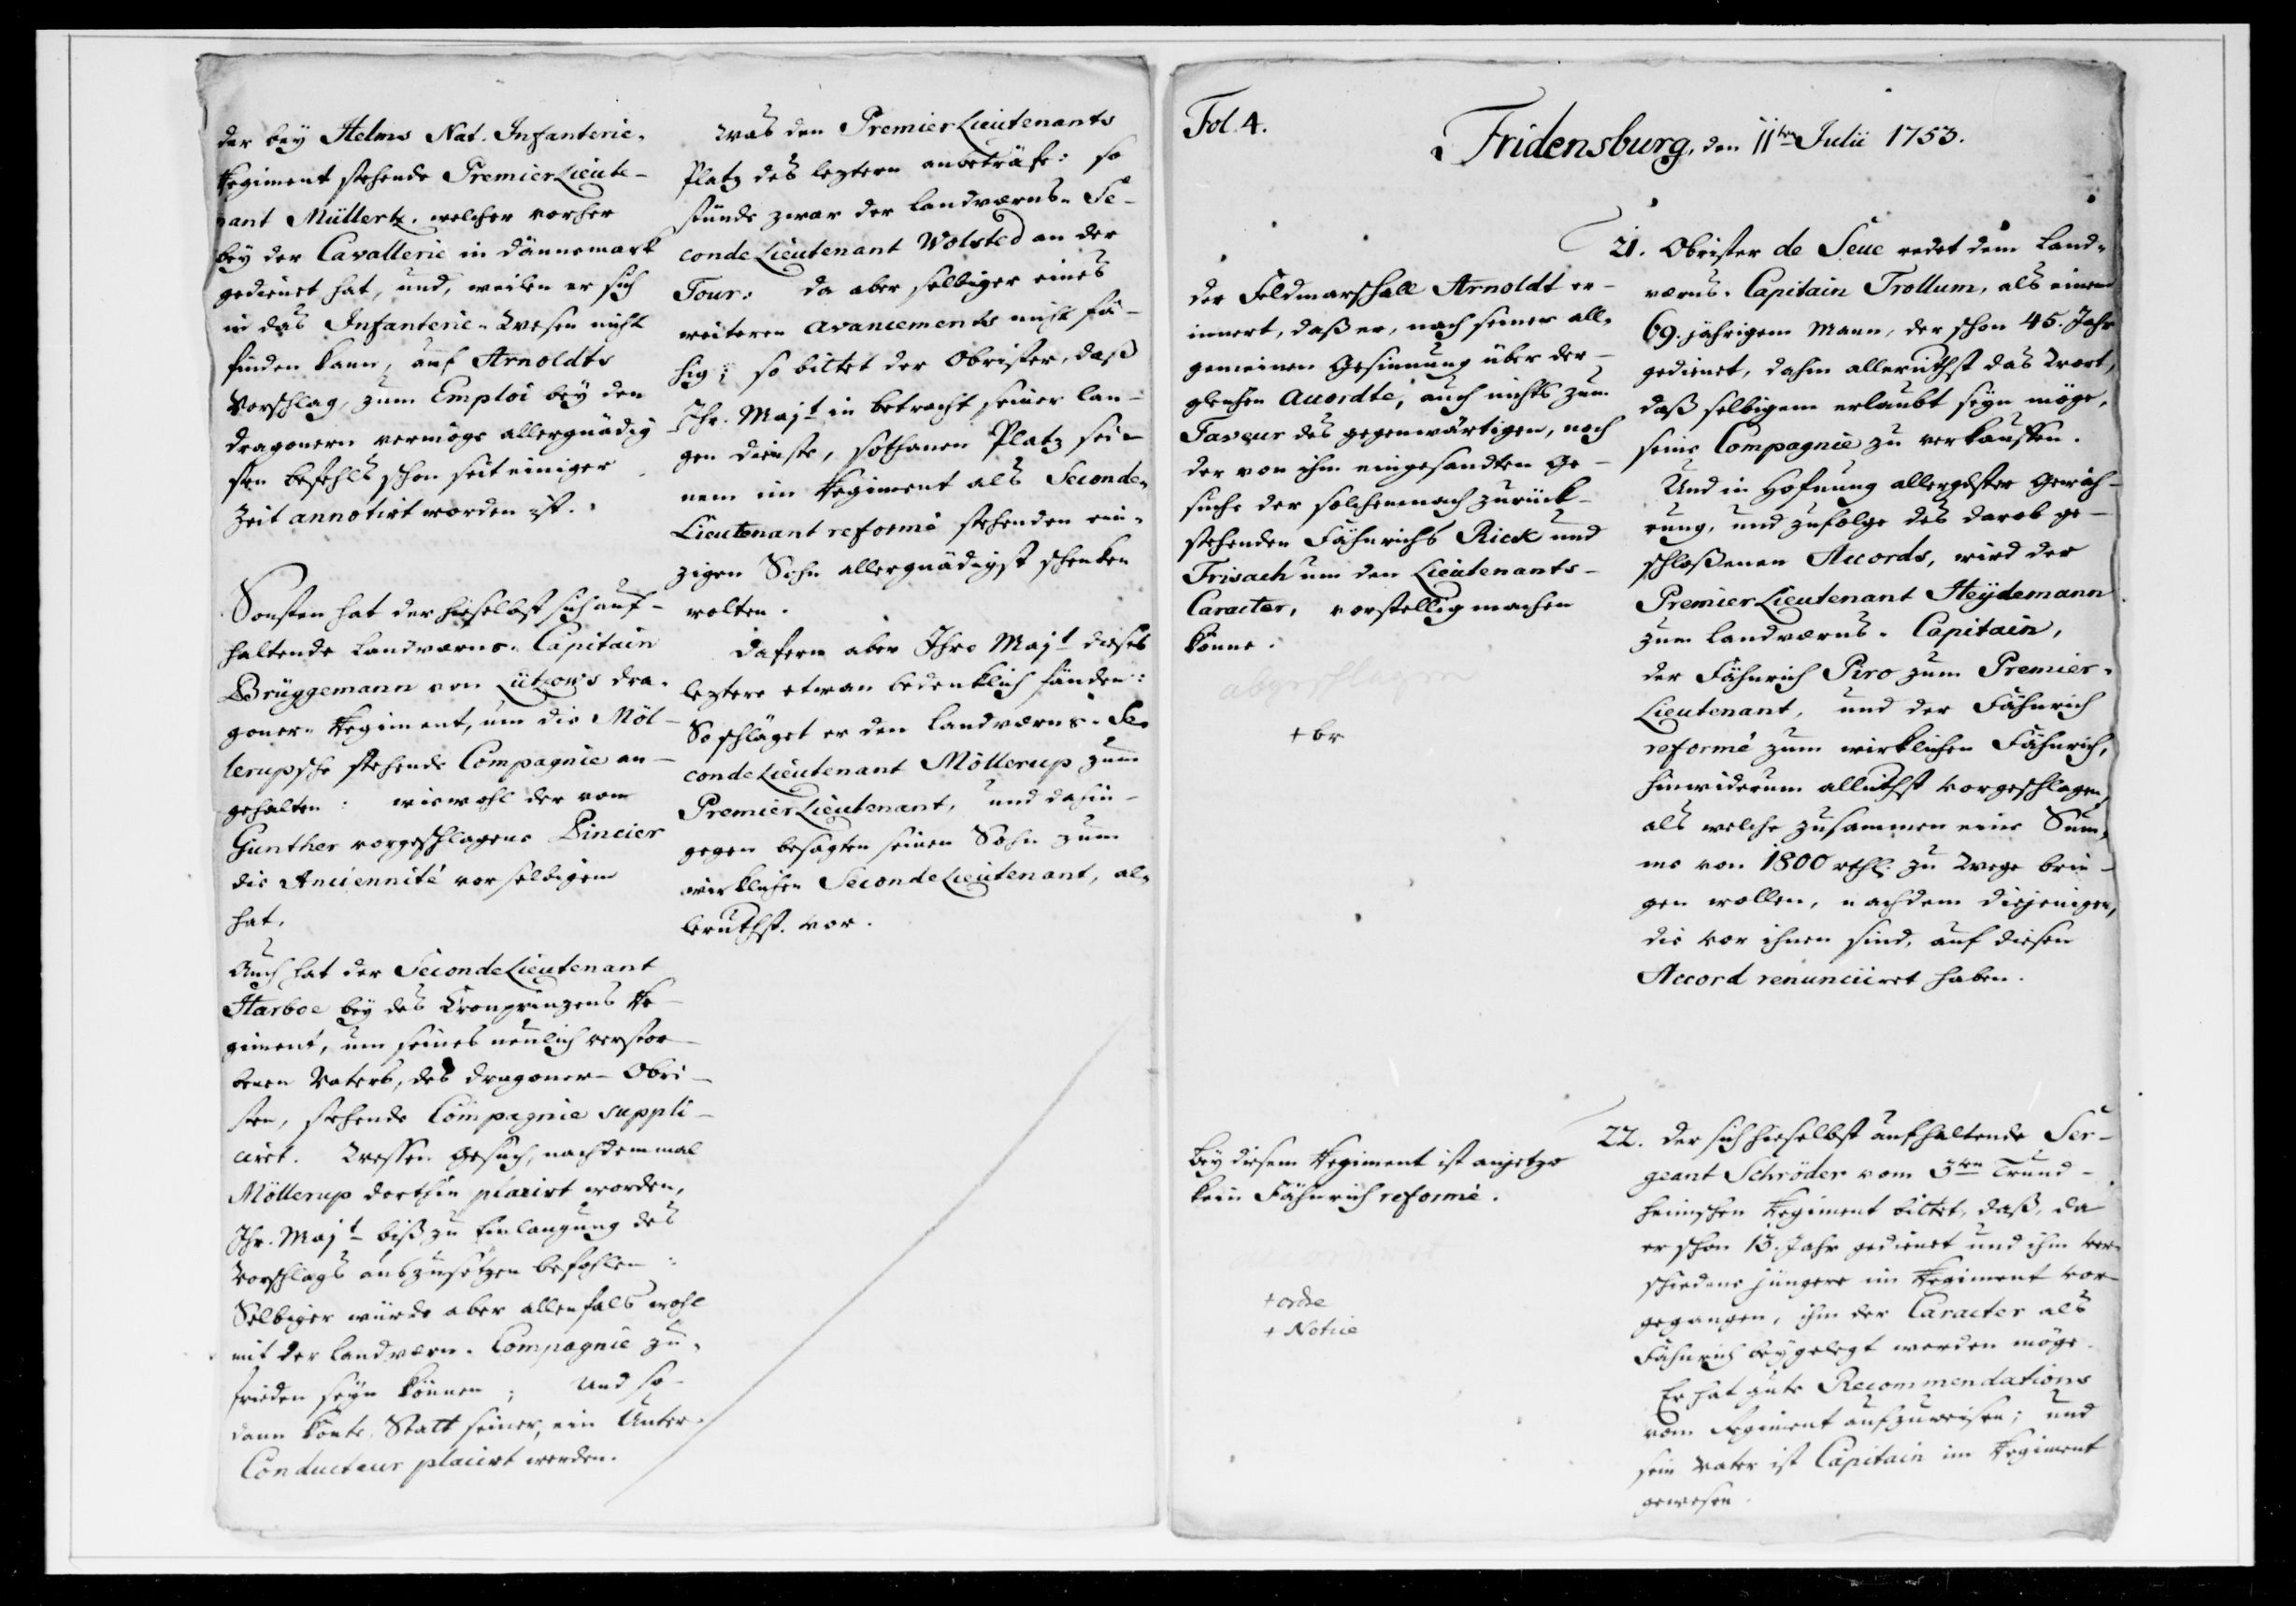 der bey Helms Nat. Infanterie-
Regiment stehende PremierLieute-
nant Müllertz. welcher vorher
bey der Cavallerie in Dännemark
gedienet hat, und, weilen er sich
in das Infanterie-Wesen nicht
finden kann, auf Arnoldts
Vorschlag, zum Emploi bey den
Dragonern vermöge allergnädig
sten Befehls schon seit einiger
Zeit annotirt worden ist.
Sonsten hat der hieselbst sich auf-
haltende Landværns-Capitain
Brüggemann von Lützow's Dra-
goner-Regiment, um die Möl-
lerupsche stehende Compagnie an-
gehalten: wiewohl der vom
Gunther vorgeschlagene Pincier
die Anciennité vor selbigem
hat.
Auch hat der SecondeLieutenant
Harboe bey des Kronprinzens Re-
giment, um seines neulich verstor-
benen Vaters, des Dragoner-Obri-
sten, stehende Compagnie suppli-
ciret. Wessen Gesuch, nachdemmal
Möllerup dorthin placirt worden,
Ihr. Majt biß zu Einlangung des
Vorschlags auszusetzen befohlen:
Selbiger würde aber allenfals wohl
mit der Landværn-Compagnie zu-
frieden seyn können; Und so-
dann könte, Statt seiner, ein Unter-
Conducteur placirt werden.
Was den PremierLieutenants
Platz des leztern anbeträfe: so
stünde zwar der Landværns-Se-
condeLieutenant Wolsted an der
Tour: da aber selbiger eines
weiteren avancements nicht fä-
hig; so bittet der Obrister, daß
Ihr. Majt in betracht seiner lan-
gen Dienste, sothanen Platz sei-
nem im Regiment als Seconde-
Lieutenant reformé stehenden ein-
zigen Sohn allergnädigst schenken
wolten.
Dafern aber Ihro Majt dieses
leztere etwan bedenklich fänden:
So schläget er den Landværns-Se-
condeLieutenant Möllerup zum
PremierLieutenant, und dahin-
gegen besagten seinen Sohn zum
wirklichen SecondeLieutenant, al-
leruthst. vor.
Fol. 4.
Fridensburg, den 11ten Julii 1753.
Der Feldmarschall Arnoldt er-
innert, daß er, nach seiner all-
gemeinen Gesinnung über der-
gleichen Accordte, auch nichts zum
Faveur des gegenwärtigen, noch
der von ihm eingesandten Ge-
suche der solchemnach zurück-
stehenden Fähnrichs Rick und
Frisach um den Lieutenants-
Caracter, vorstellig machen
könne.
abgeschlagen
+ br
21. Obrister de Seue redet dem Land-
værns-Capitain Trollum, als einem
69. jährigem Mann, der schon 45. Jahr
gedienet, dahin alleruthst das Wort,
daß selbigem erlaubt seyn möge,
seine Compagnie zu verkauffen.
Und in Hofnung allergdster Gewäh-
rung, und zufolge des darob ge-
schloßenen Accords, wird der
PremierLieutenant Heydemann
zum Landværns-Capitain,
der Fähnrich Piro zum Premier-
Lieutenant, und der Fähnrich
reformé zum wirklichen Fähnrich,
hinwiderum alluthst vorgeschlagen,
als welche zusammen eine Sum-
me von 1800 rthl. zu Wege brin-
gen wollen, nachdem diejenigen,
die vor ihnen sind, auf diesen
Accord renunciiret haben.
Bey diesem Regiment ist anjetzo
kein Fähnrich reformé.
+ ordre
+ Notice
22. Der sich hieselbst aufhaltende Ser-
geant Schröder vom 3ten Trund-
heimschen Regiment bittet, daß, da
er schon 13. Jahr gedienet und ihm ver-
schiedene jüngere im Regiment vor-
gegangen, ihm der Caracter als
Fähnrich beygelegt werden möge.
Er hat gute Recommendations
vom Regiment aufzuweisen; und
sein Vater ist Capitain im Regiment
gewesen.